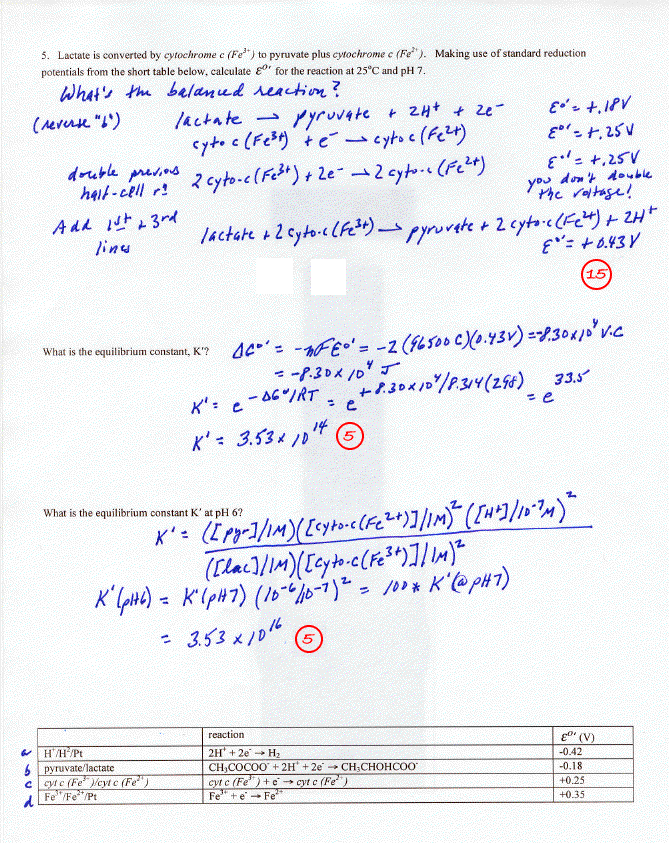 5. Lactate is converted by cytochrome c (Fe³⁺) to pyruvate plus cytochrome c (Fe²⁺). Making use of standard reduction
potentials from the short table below, calculate ℰ°' for the reaction at 25°C and pH 7.
What's the balanced reaction?
(reverse "b") lactate → pyruvate + 2H⁺ + 2e⁻ ℰ°' = +.18V
cyto c (Fe³⁺) + e⁻ → cyto c (Fe²⁺) ℰ°' = +.25V
double previous half-cell rxn 2 cyto-c (Fe³⁺) + 2e⁻ → 2 cyto-c (Fe²⁺) ℰ°' = +.25V
you don't double the voltage!
Add 1st + 3rd lines lactate + 2 cyto-c (Fe³⁺) → pyruvate + 2 cyto-c (Fe²⁺) + 2H⁺
ℰ°' = +0.43V
15
What is the equilibrium constant, K'? ΔG°' = -nFℰ°' = -2 (96500 C)(0.43V) = -8.30x10⁴ V·C
= -8.30x10⁴ J
K' = e^-ΔG°'/RT = e^+8.30x10⁴/8.314(298) = e^33.5
K' = 3.53x10¹⁴ 5
What is the equilibrium constant K' at pH 6?
K' = ([pyr]/1M)([cyto-c(Fe²⁺)]/1M)² ([H⁺]/10⁻⁷M)²
([lac]/1M)([cyto-c(Fe³⁺)]/1M)²
K'(pH6) = K'(pH7) (10⁻⁶/10⁻⁷)² = 100 * K'(@pH7)
= 3.53 x 10¹⁶ 5
reaction ℰ°' (V)
a H⁺/H²/Pt 2H⁺ + 2e⁻ → H₂ -0.42
b pyruvate/lactate CH₃COCOO⁻ + 2H⁺ + 2e⁻ → CH₃CHOHCOO⁻ -0.18
c cyt c (Fe³⁺)/cyt c (Fe²⁺) cyt c (Fe³⁺) + e⁻ → cyt c (Fe²⁺) +0.25
d Fe³⁺/Fe²⁺/Pt Fe³⁺ + e⁻ → Fe²⁺ +0.35